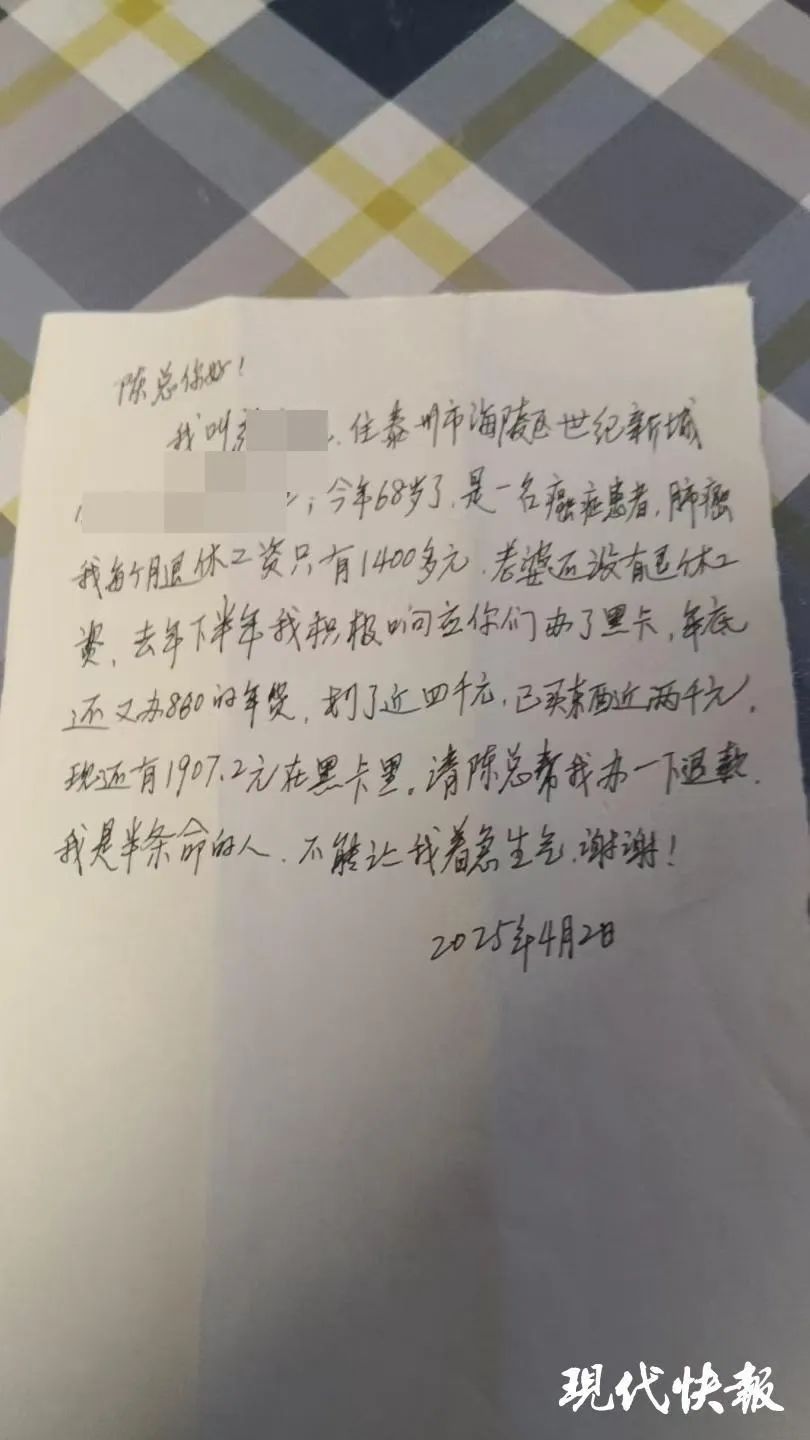 陈总你好！
我叫 住泰州市海陵区世纪新城
，今年68岁了，是一名癌症患者，肺癌
我每个月退休工资只有1400多元，老婆还没有退休工
资，去年下半年我积极响应你们办了黑卡，年底
还又办860的年货，划了近四千元，已买东西近两千元，
现还有1907.2元在黑卡里。请陈总帮我办一下退款，
我是半条命的人，不能让我着急生气，谢谢！
2025年4月2日
现代快報